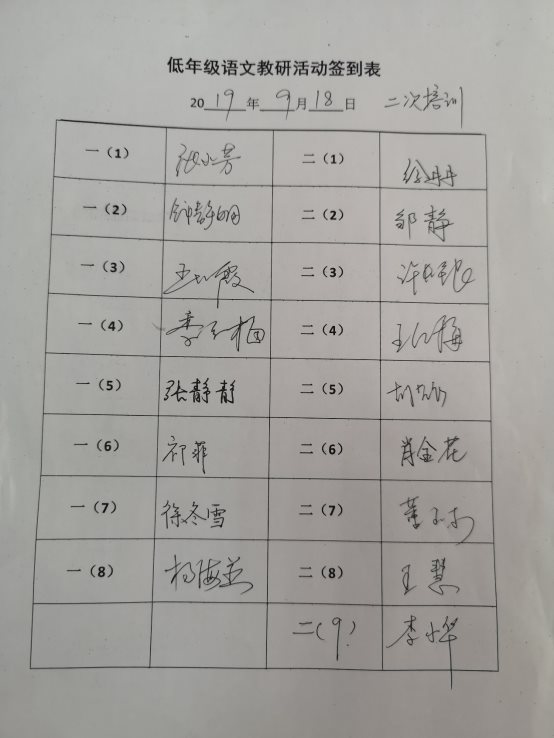 低年级语文教研活动签到表
2019年9月18日 二次培训
一（1） 张小芳 二（1） 徐丹丹
一（2） 钟静娴 二（2） 邹静
一（3） 王 霞 二（3） 许
一（4） 李 二（4） 王 梅
一（5） 张静静 二（5）
一（6） 祁菲 二（6） 肖金花
一（7） 徐冬雪 二（7） 董
一（8） 杨海 二（8） 王慧
二（9） 李小华